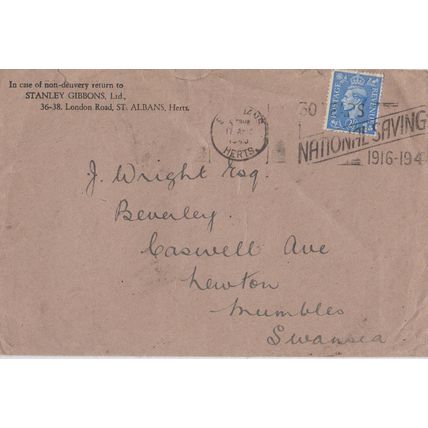 In case of non-delivery return to
STANLEY GIBBONS, Ltd.,
36-38, London Road, ST. ALBANS, Herts.
HERTS.
POSTAGE
REVENUE
30 YEARS
NATIONAL SAVING
1916-194
J. Wright Esq.
Beverley.
Caswell Ave
Newton
Mumbles
Swansea